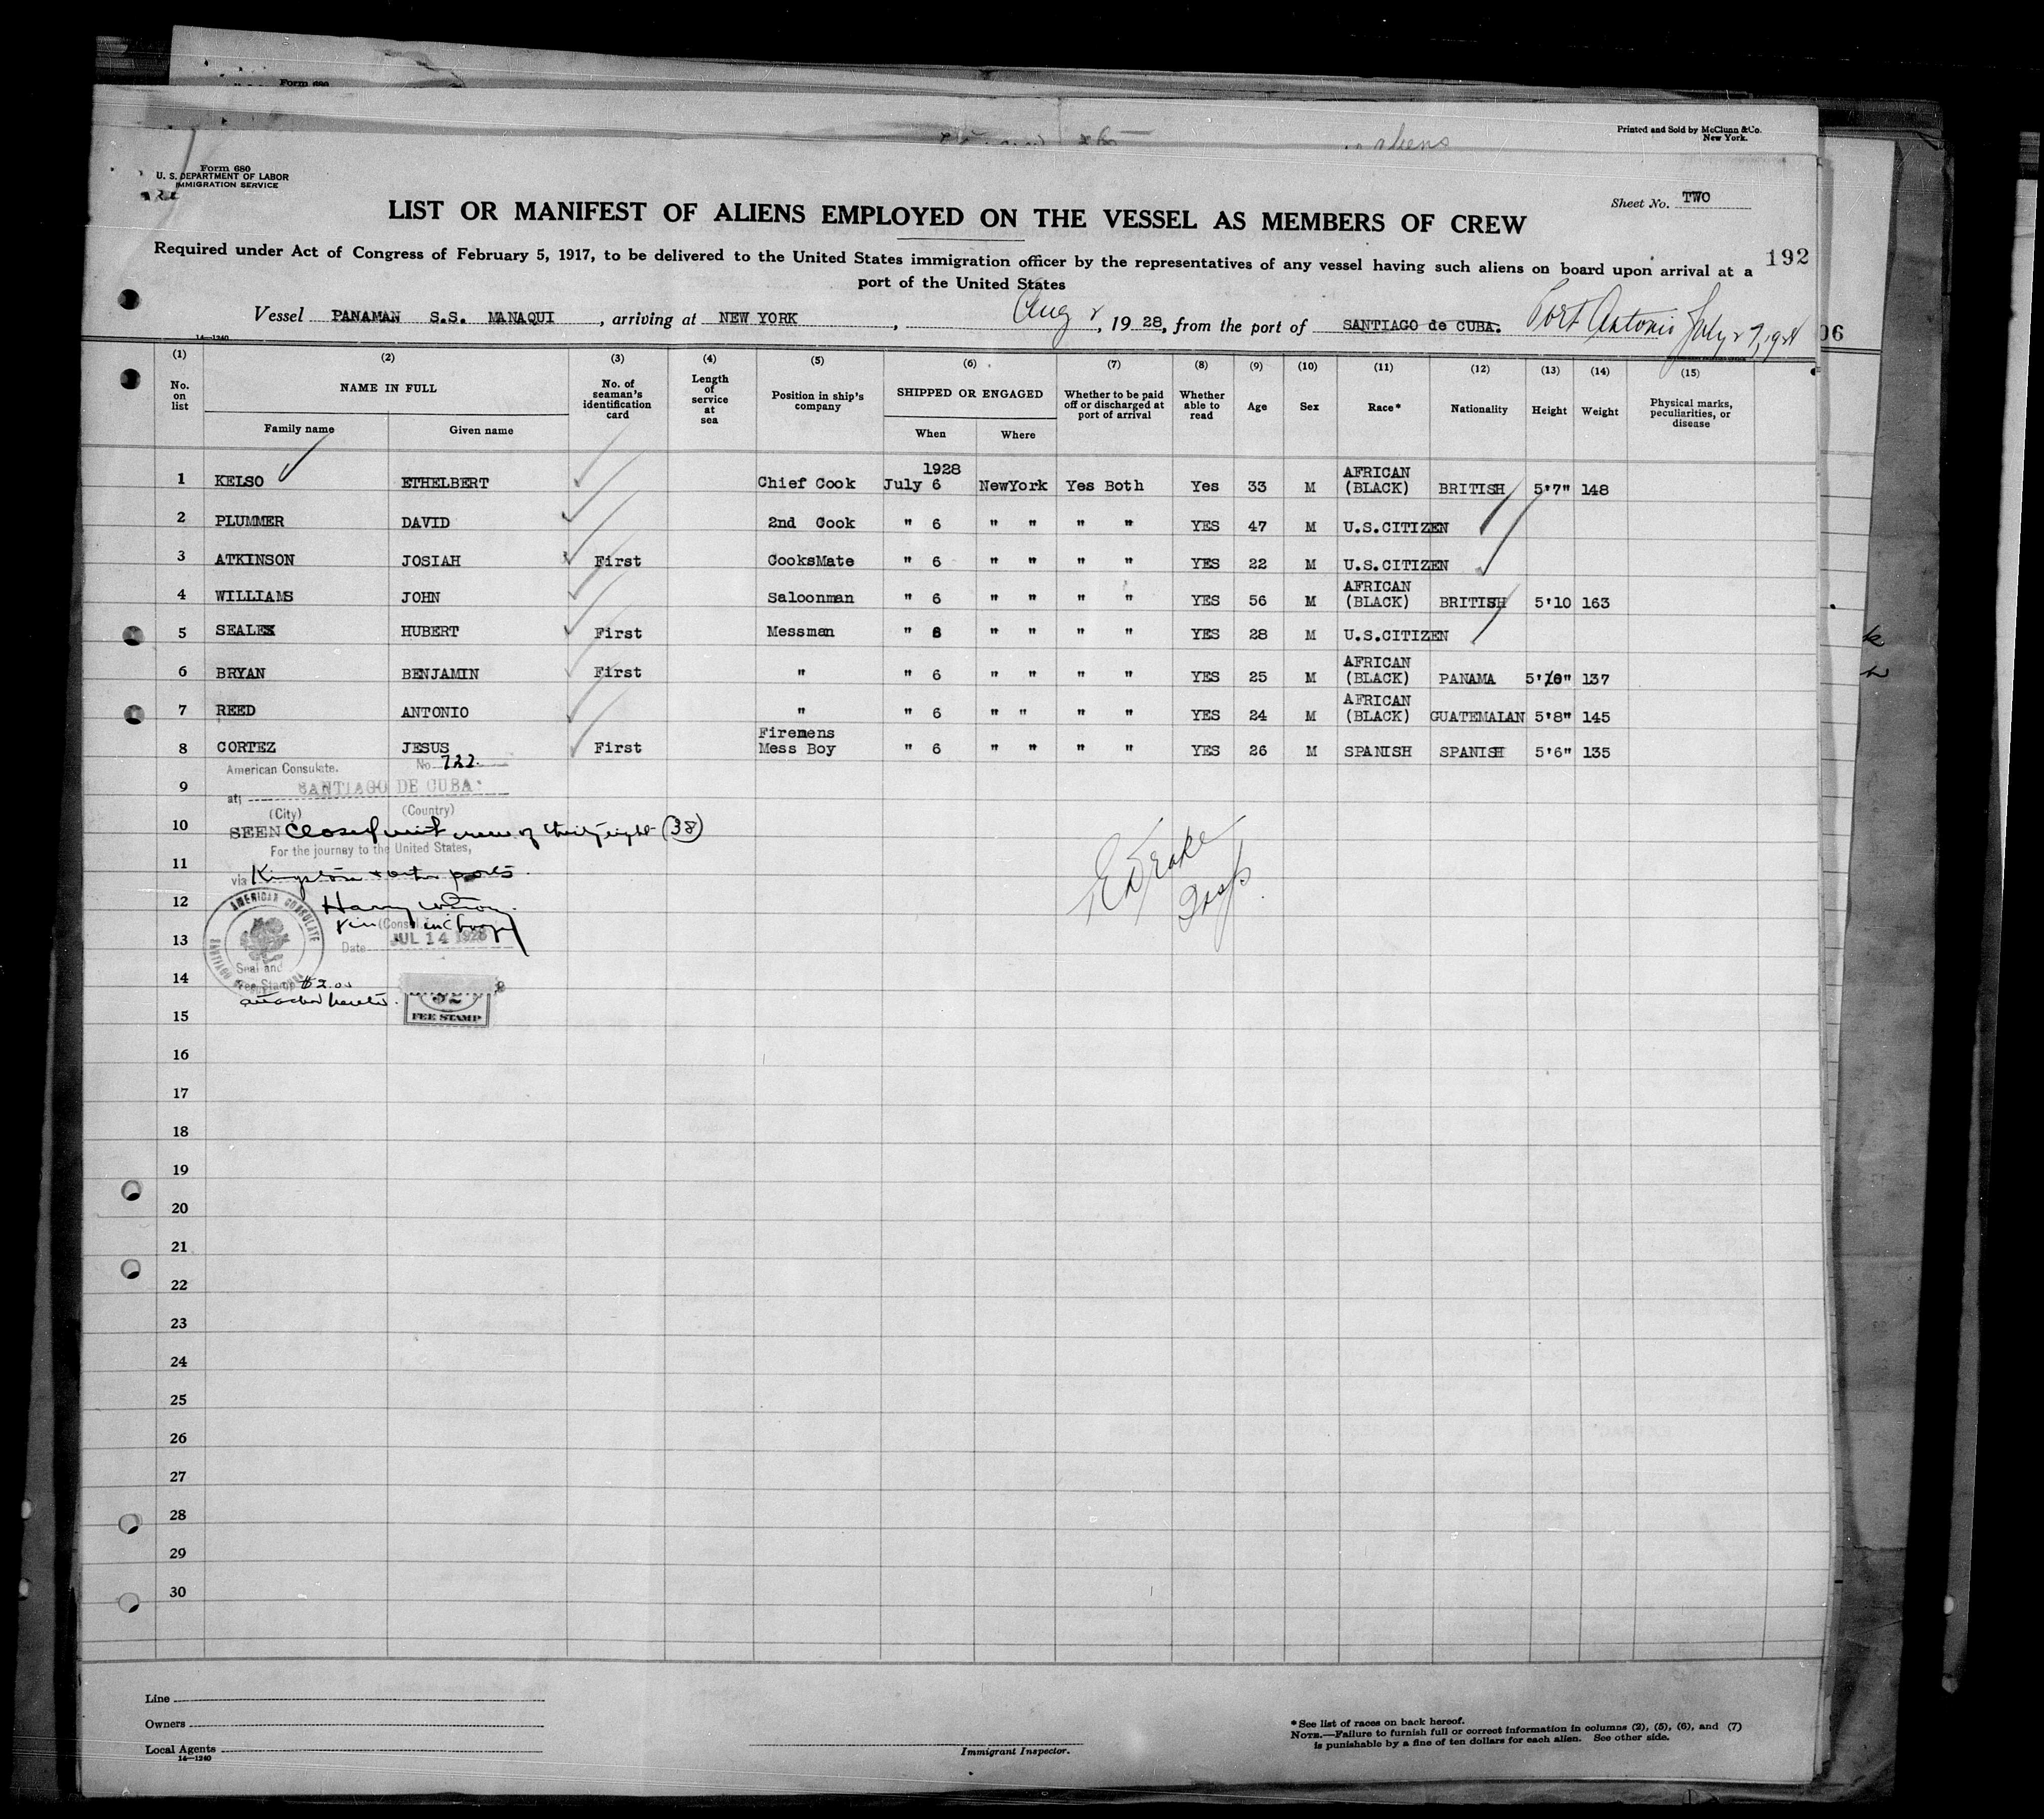 Form 680
Printed and Sold by McClunn & Co.
New York.
aliens
Form 680
U. S. DEPARTMENT OF LABOR
IMMIGRATION SERVICE
Sheet No. TWO
LIST OR MANIFEST OF ALIENS EMPLOYED ON THE VESSEL AS MEMBERS OF CREW
192
Required under Act of Congress of February 5, 1917, to be delivered to the United States immigration officer by the representatives of any vessel having such aliens on board upon arrival at a
port of the United States
Vessel PANAMAN S.S. MANAQUI, arriving at NEW YORK, Aug 2, 1928, from the port of SANTIAGO de CUBA. Port Antonio July 27, 1928
06
14—1240
(1) (2) (3) (4) (5) (6) (7) (8) (9) (10) (11) (12) (13) (14) (15)
No. on list NAME IN FULL No. of seaman's identification card Length of service at sea Position in ship's company SHIPPED OR ENGAGED Whether to be paid off or discharged at port of arrival Whether able to read Age Sex Race* Nationality Height Weight Physical marks, peculiarities, or disease
Family name Given name When Where
1 KELSO ETHELBERT Chief Cook 1928 July 6 NewYork Yes Both Yes 33 M AFRICAN (BLACK) BRITISH 5'7" 148
2 PLUMMER DAVID 2nd Cook " 6 " " " " YES 47 M U.S.CITIZEN
3 ATKINSON JOSIAH First CooksMate " 6 " " " " YES 22 M U.S.CITIZEN
4 WILLIAMS JOHN Saloonman " 6 " " " " YES 56 M AFRICAN (BLACK) BRITISH 5'10 163
5 SEALEX HUBERT First Messman " 6 " " " " YES 28 M U.S.CITIZEN
6 BRYAN BENJAMIN First " " 6 " " " " YES 25 M AFRICAN (BLACK) PANAMA 5'10" 137
7 REED ANTONIO " " 6 " " " " YES 24 M AFRICAN (BLACK) GUATEMALAN 5'8" 145
8 CORTEZ JESUS First Firemens Mess Boy " 6 " " " " YES 26 M SPANISH SPANISH 5'6" 135
American Consulate. No. 722.
9
at SANTIAGO DE CUBA
(City) (Country)
10 SEEN Closed with crew of thirty eight (38)
For the journey to the United States,
11
via Kingston + other ports.
12
AMERICAN CONSULATE
(Consul in charge
13
Date JUL 14 1928
Seal and
14
Fee Stamp $2.00
attached hereto.
FEE STAMP
15
16
17
18
19
20
21
22
23
24
25
26
27
28
29
30
Line
Owners
Local Agents
14—1240
Immigrant Inspector.
*See list of races on back hereof.
NOTE.—Failure to furnish full or correct information in columns (2), (5), (6), and (7)
is punishable by a fine of ten dollars for each alien. See other side.